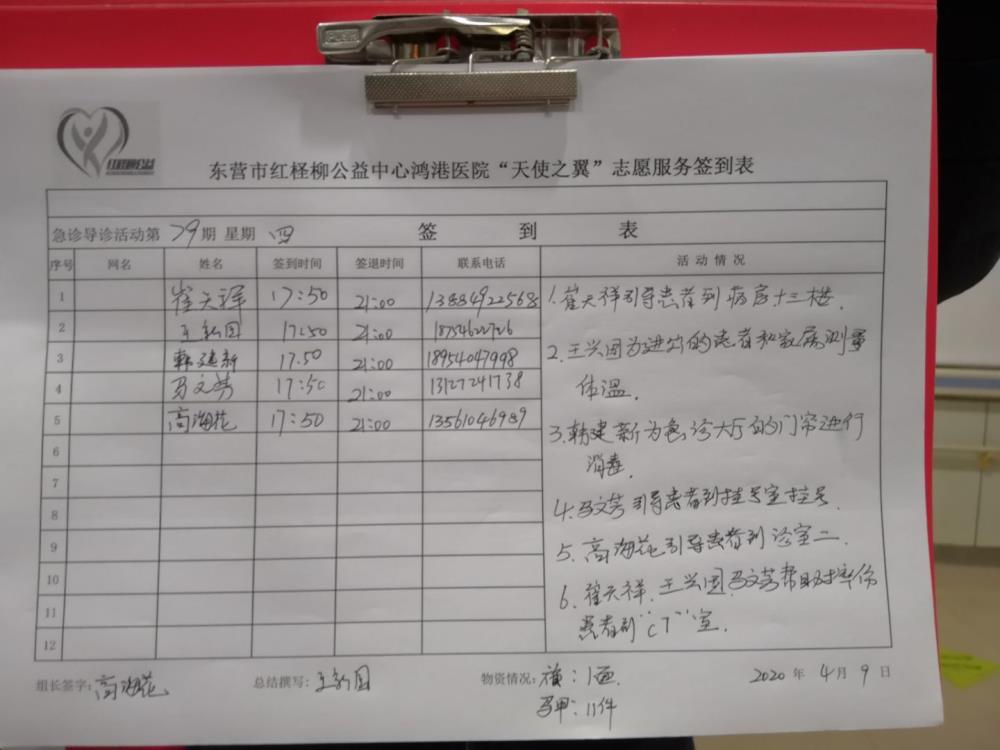 红柽柳公益
东营市红柽柳公益中心鸿港医院“天使之翼”志愿服务签到表
急诊导诊活动第79期 星期 四 签 到 表
序号 网名 姓名 签到时间 签退时间 联系电话 活动情况
1 崔天祥 17:50 21:00 13884922568
2 王兴国 17:50 21:00 18754622726
3 韩建新 17.50 21:00 18954047998
4 马文芳 17:50 21:00 13127241738
5 高海花 17:50 21:00 13561046989
6
7
8
9
10
11
12
1. 崔天祥引导患者到病房十三楼.
2. 王兴国为进出的患者和家属测量
体温.
3. 韩建新为急诊大厅的门帘进行
消毒.
4. 马文芳引导患者到挂号室挂号
5. 高海花引导患者到诊室二.
6. 崔天祥.王兴国.马文芳帮助摔伤
患者到“CT”室.
组长签字:高海花 总结撰写:王兴国 物资情况:旗:1面. 2020 年 4 月 9 日
马甲:11件